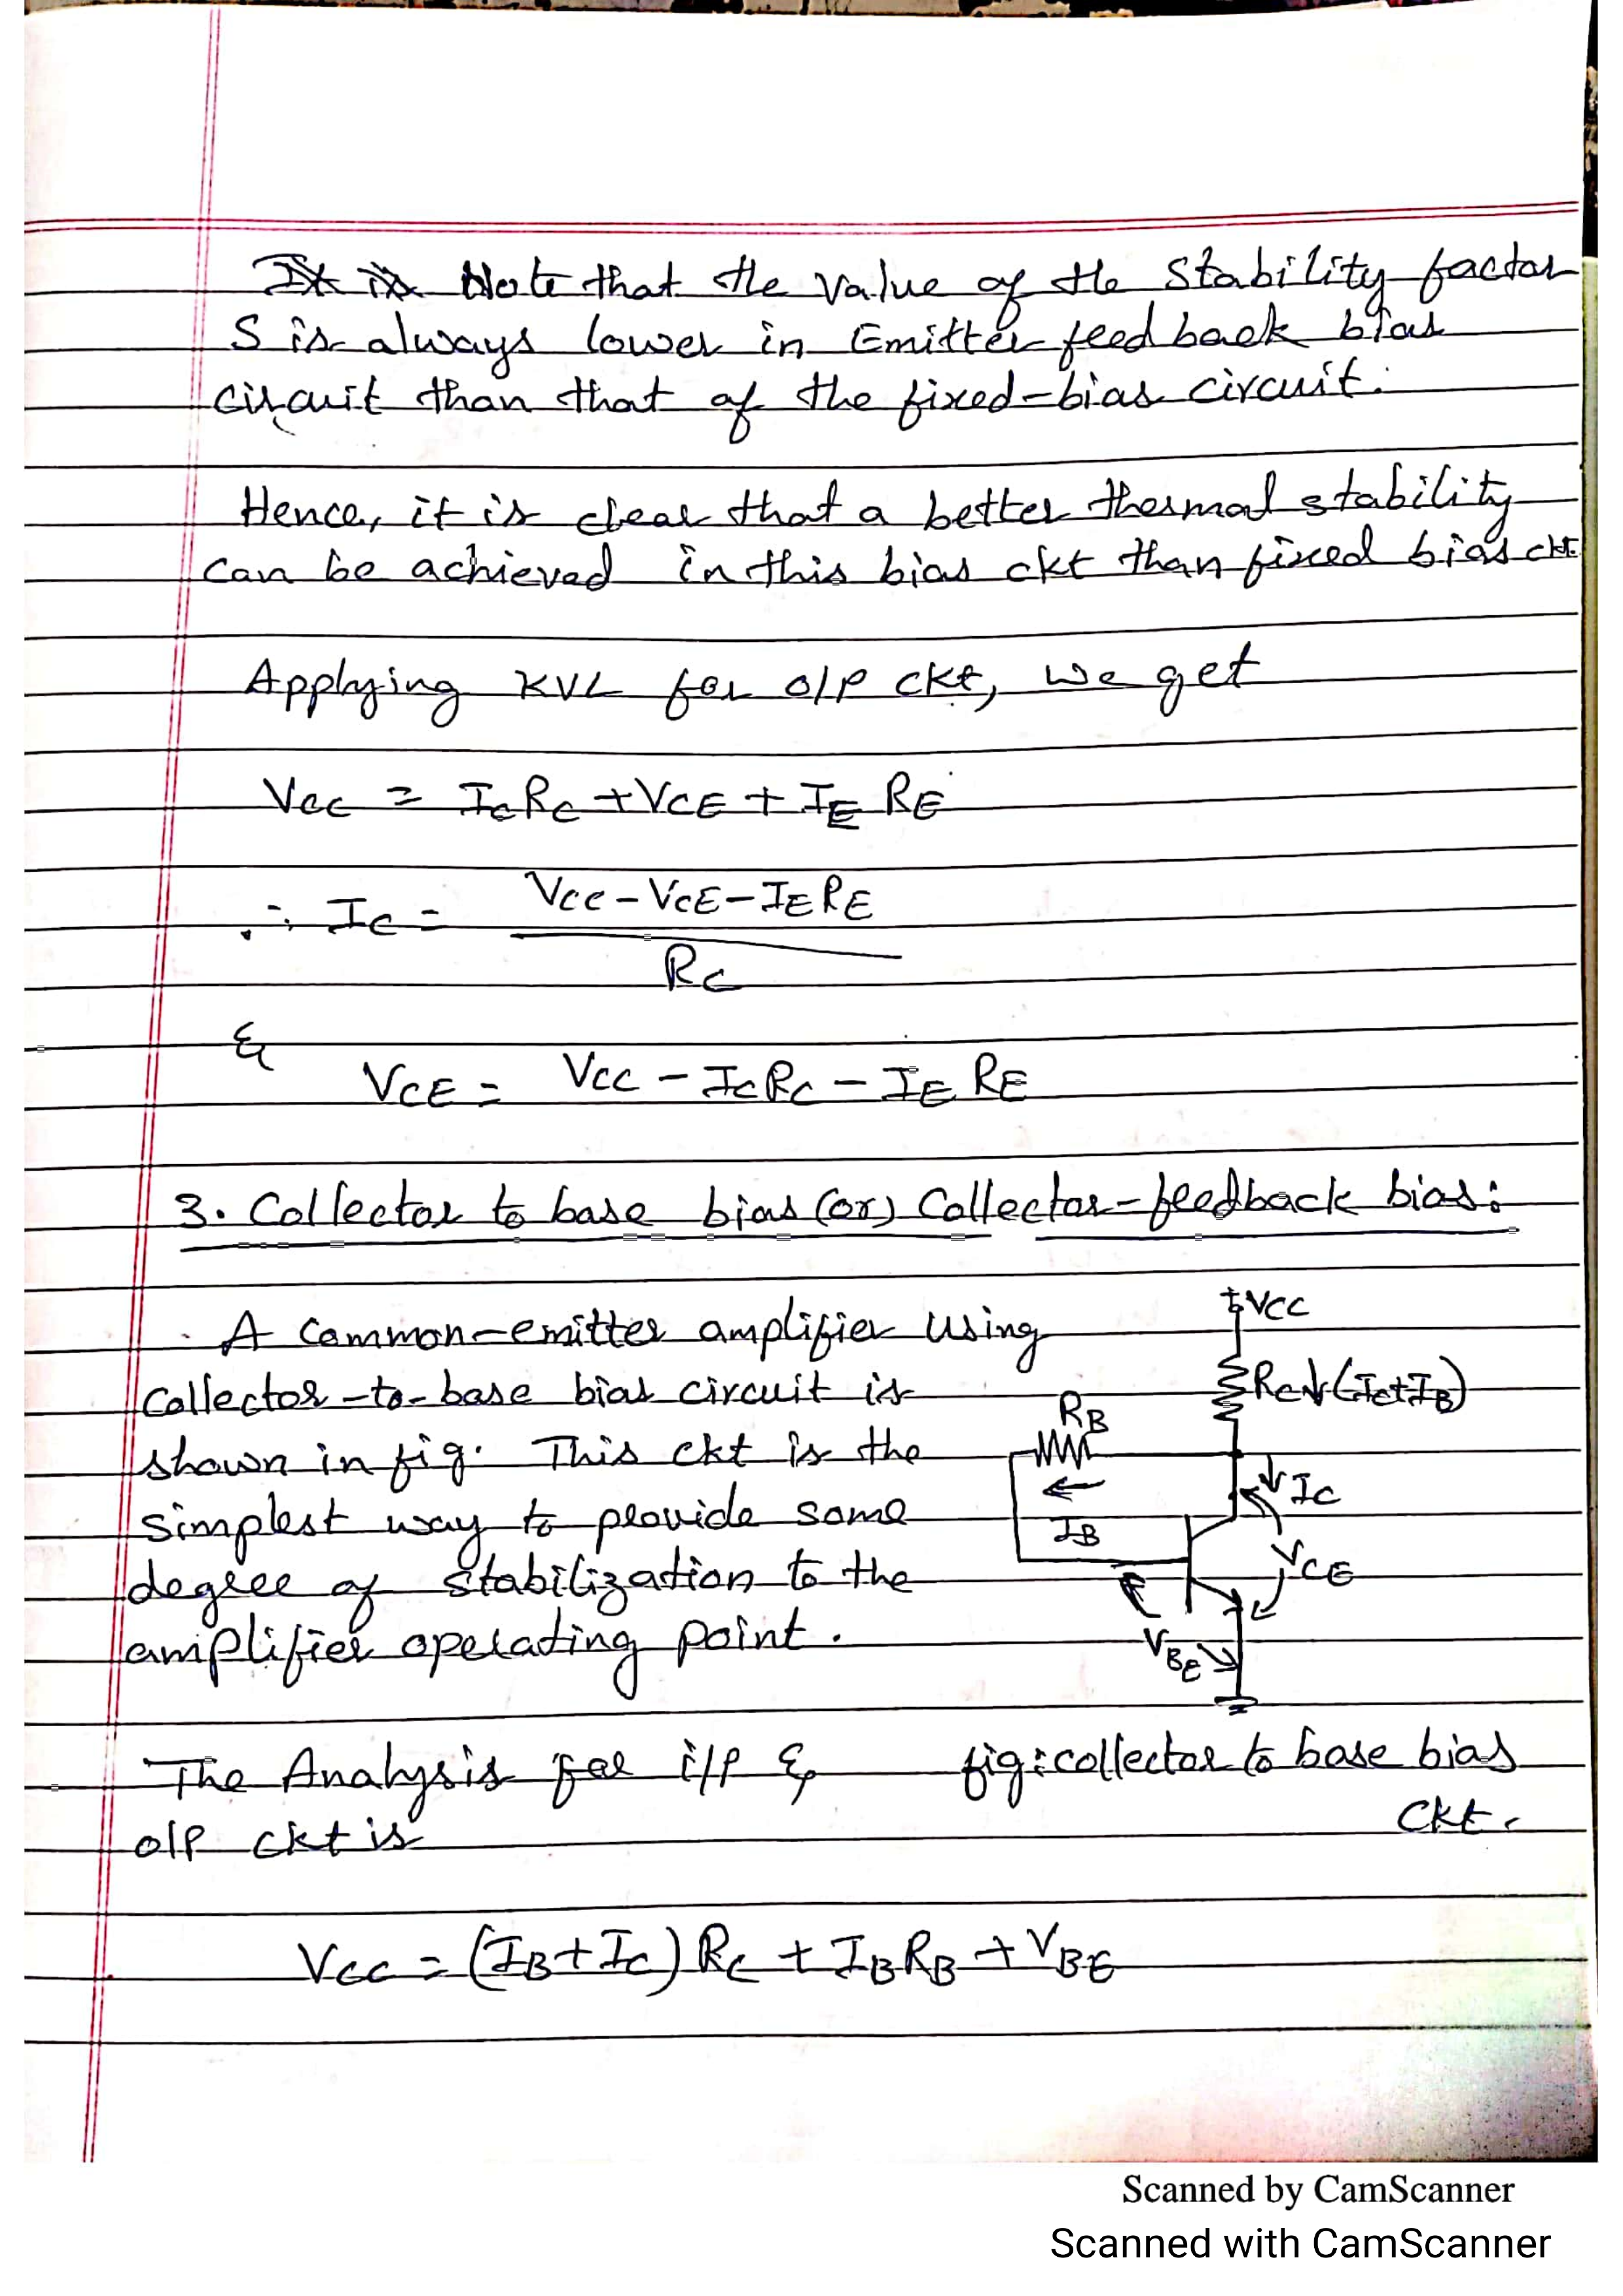 Note that the value of the stability factor
S is always lower in Emitter feedback bias
circuit than that of the fixed-bias circuit.
Hence, it is clear that a better thermal stability
can be achieved in this bias ckt than fixed bias ckt
Applying KVL for o/p ckt, we get
Vcc = IcRc + VCE + IE RE
∴ Ic = Vcc - VCE - IE RE
Rc
&
VCE = Vcc - IcRc - IE RE
3. Collector to base bias (or) Collector-feedback bias:
A Common-emitter amplifier using
collector-to-base bias circuit is
shown in fig. This ckt is the
simplest way to provide some
degree of stabilization to the
amplifier operating point.
+VCC
Rc ↓(Ic+IB)
RB
←
IB
↓Ic
VCE
VBE
The Analysis for i/p &
o/p ckt is
fig: collector to base bias
ckt.
Vcc = (IB+Ic) Rc + IBRB + VBE
Scanned by CamScanner
Scanned with CamScanner